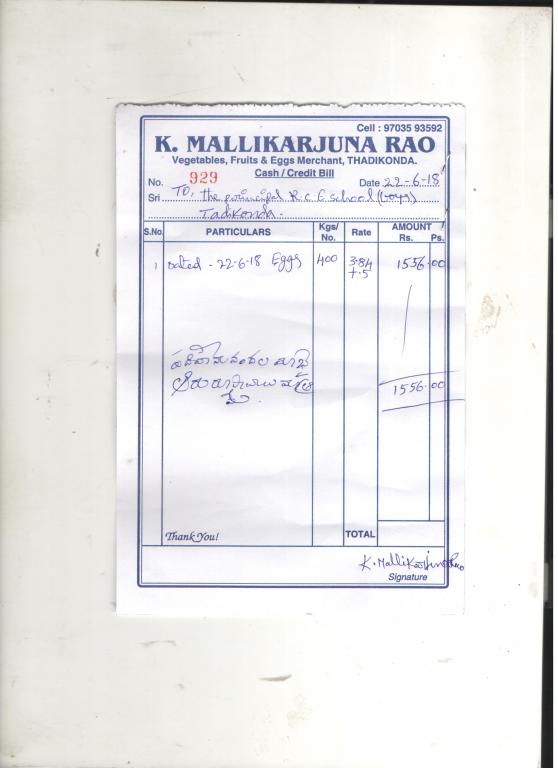 Cell : 97035 93592
K. MALLIKARJUNA RAO
Vegetables, Fruits & Eggs Merchant, THADIKONDA.
Cash / Credit Bill
No. 929 Date 22-6-18
Sri To, the principal R.C.E school (boys)
Tadikonda.
S.No. PARTICULARS Kgs/No. Rate AMOUNT Rs. Ps.
1 Dated - 22-6-18 Eggs 400 3.84 1556.00
+.5
1556.00
Thank You! TOTAL
K. Mallikarjuna Rao
Signature